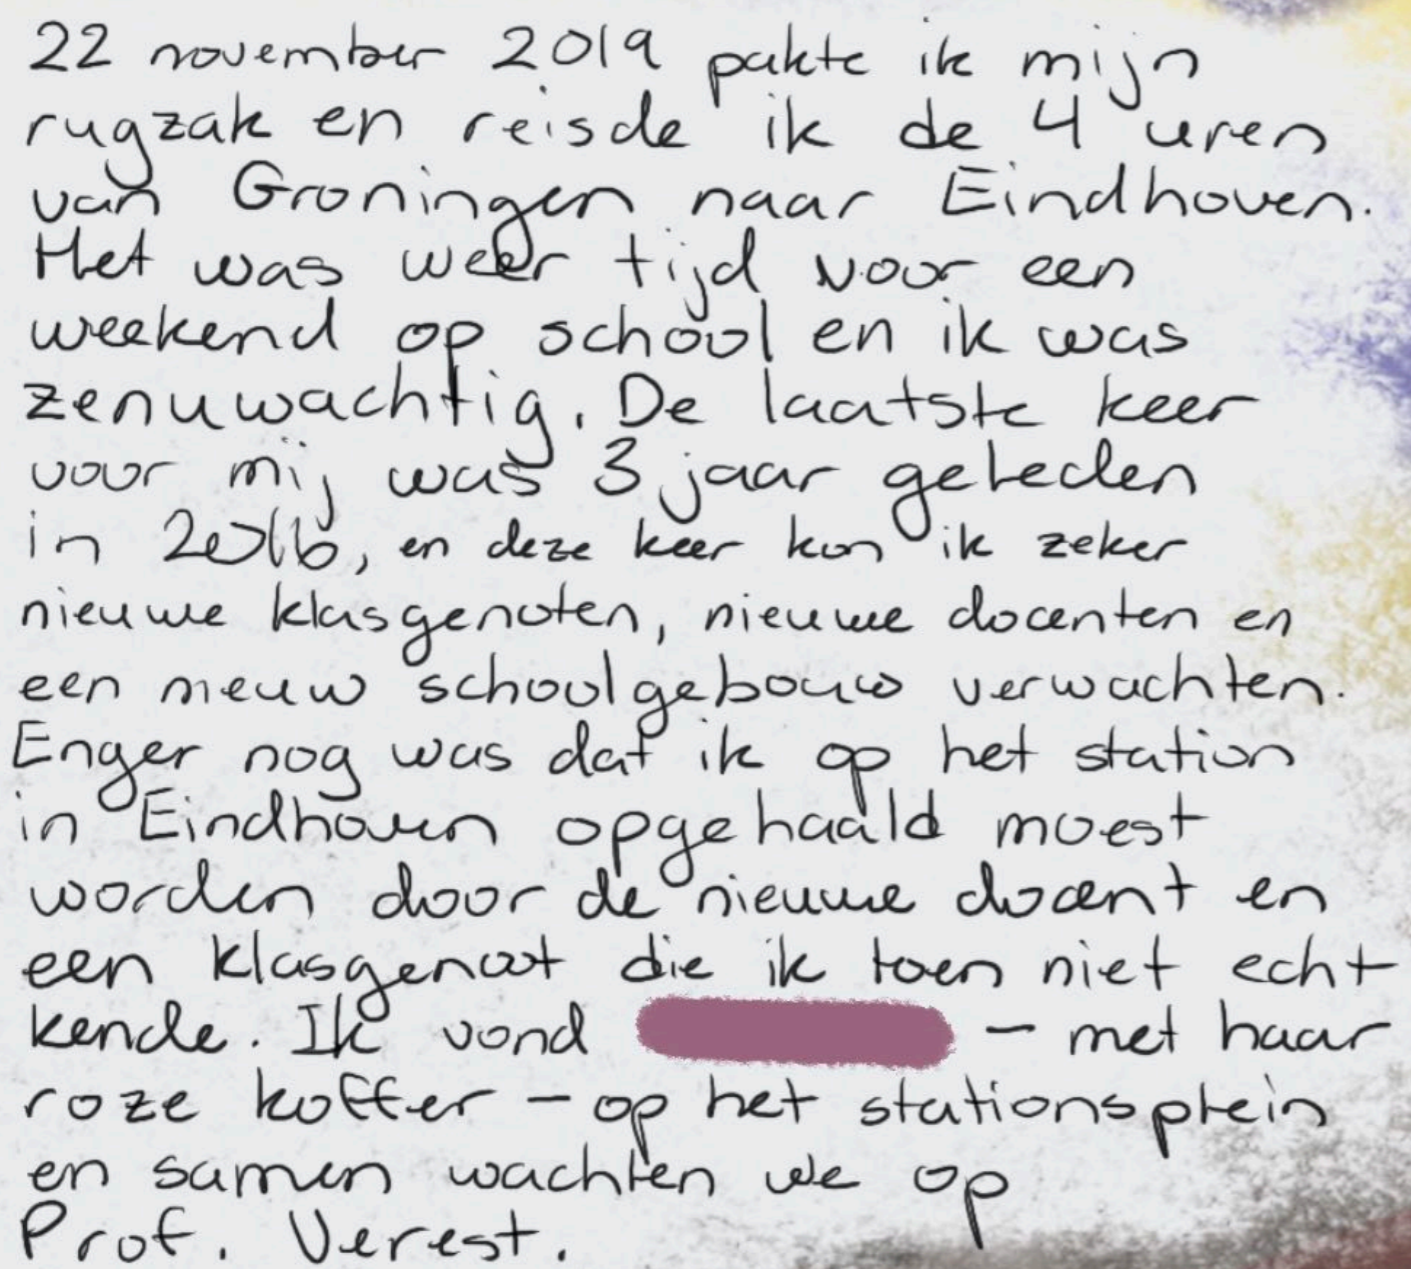 22 november 2019 pakte ik mijn
rugzak en reisde ik de 4 uren
van Groningen naar Eindhoven.
Het was weer tijd voor een
weekend op school en ik was
zenuwachtig. De laatste keer
voor mij was 3 jaar geleden
in 2016, en deze keer kon ik zeker
nieuwe klasgenoten, nieuwe docenten en
een nieuw schoolgebouw verwachten.
Enger nog was dat ik op het station
in Eindhoven opgehaald moest
worden door de nieuwe docent en
een klasgenoot die ik toen niet echt
kende. Ik vond – met haar
roze koffer – op het stationsplein
en samen wachten we op
Prof. Verest.